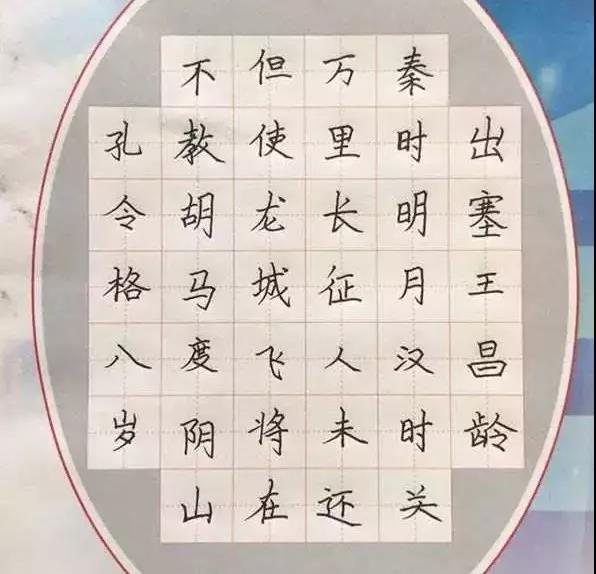 出塞王昌龄
秦时明月汉时关
万里长征人未还
但使龙城飞将在
不教胡马度阴山
孔令格八岁